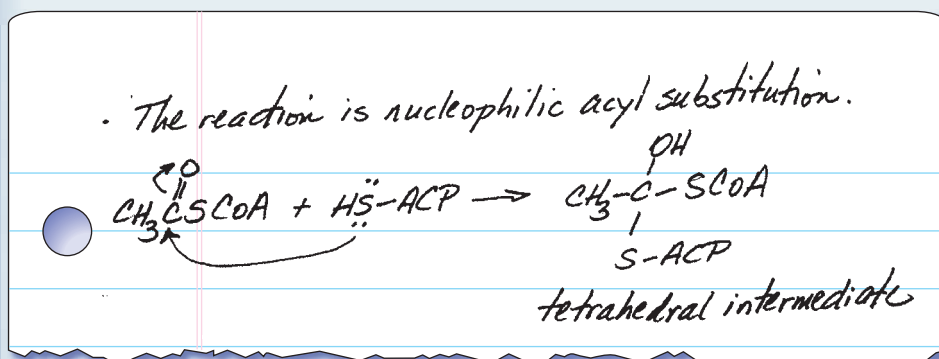 · The reaction is nucleophilic acyl substitution.
O OH
CH3CSCoA + HS̈-ACP → CH3-C-SCoA
S-ACP
tetrahedral intermediate